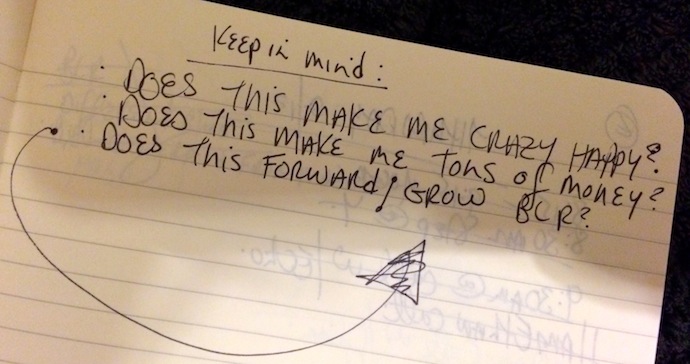 Keep in mind:
· DOES THIS MAKE ME CRAZY HAPPY?
· DOES THIS MAKE ME TONS OF MONEY?
· DOES THIS FORWARD / GROW BCR?
8:30 AM
9:30 AM @